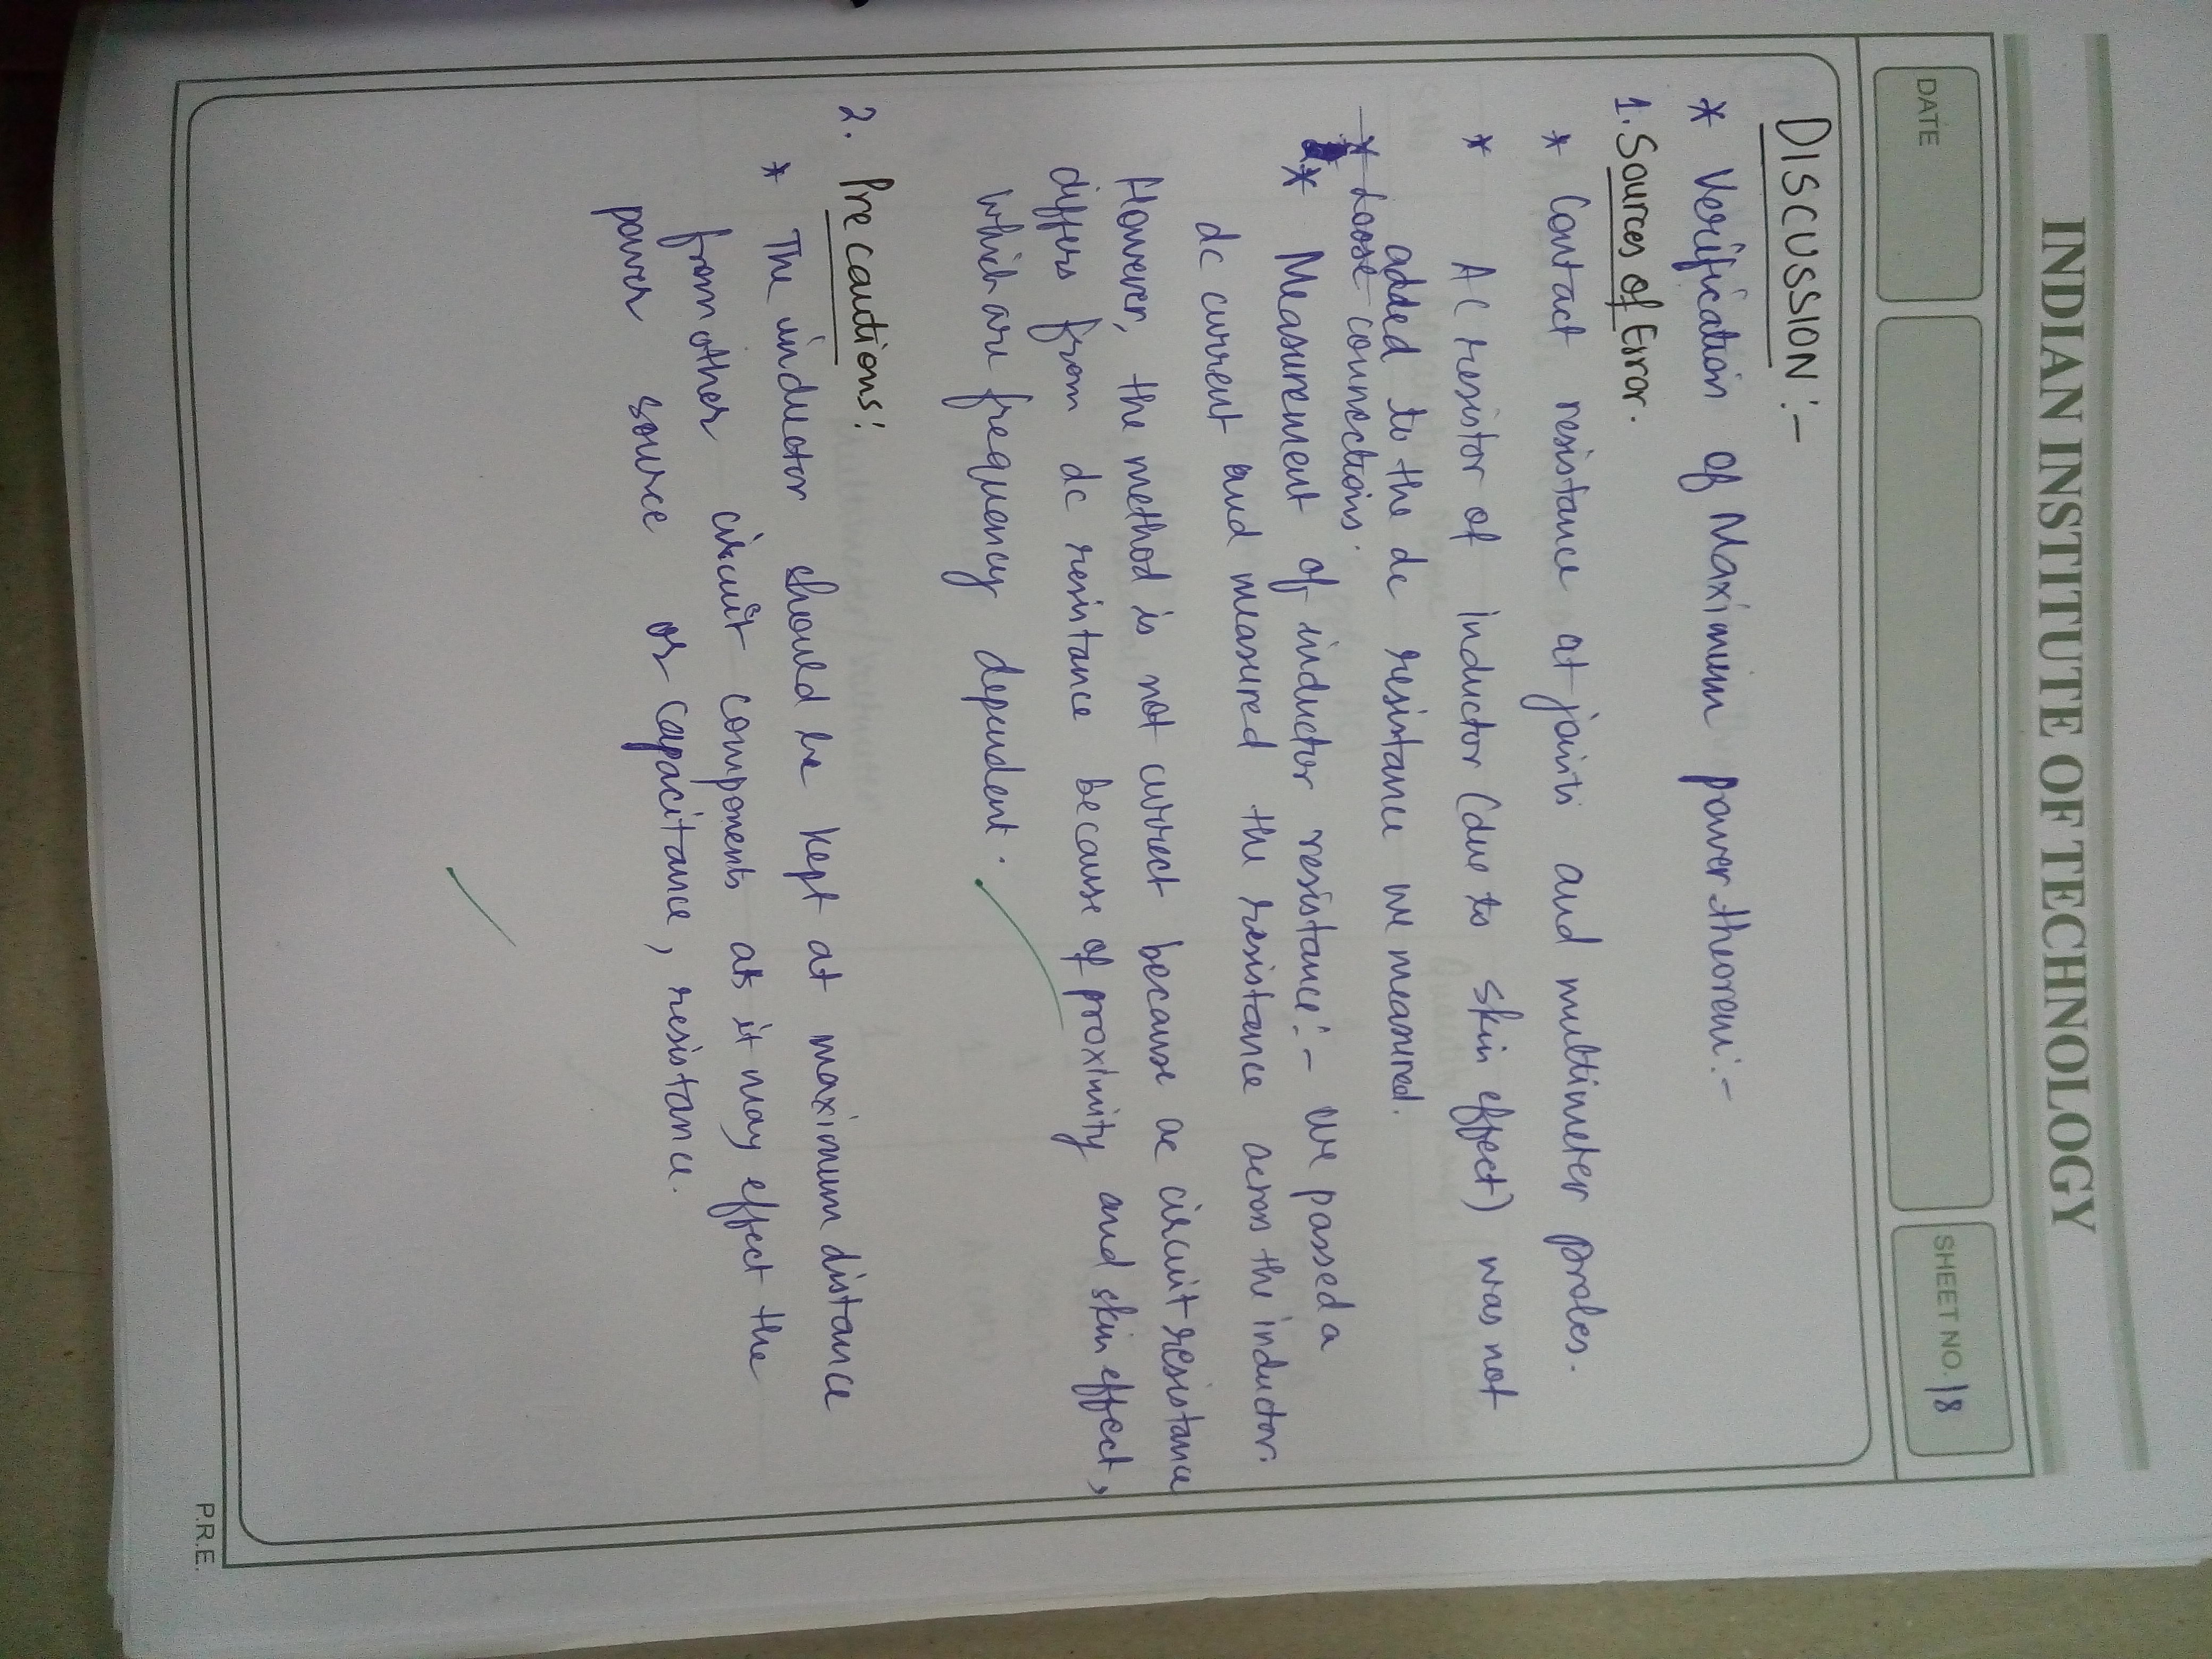 INDIAN INSTITUTE OF TECHNOLOGY
DATE
SHEET NO. 18
DISCUSSION :-
* Verification of Maximum power theorem:-
1. Sources of Error.
* Contact resistance at joints and multimeter probes.
* AC resistor of inductor (due to skin effect) was not
added to the dc resistance we measured.
* Loose connections.
* Measurement of inductor resistance:- We passed a
dc current and measured the resistance across the inductor.
However, the method is not correct because ac circuit resistance
differs from dc resistance because of proximity and skin effect,
which are frequency dependent.
2. Precautions:
* The inductor should be kept at maximum distance
from other circuit components as it may effect the
power source or capacitance, resistance.
P.R.E.